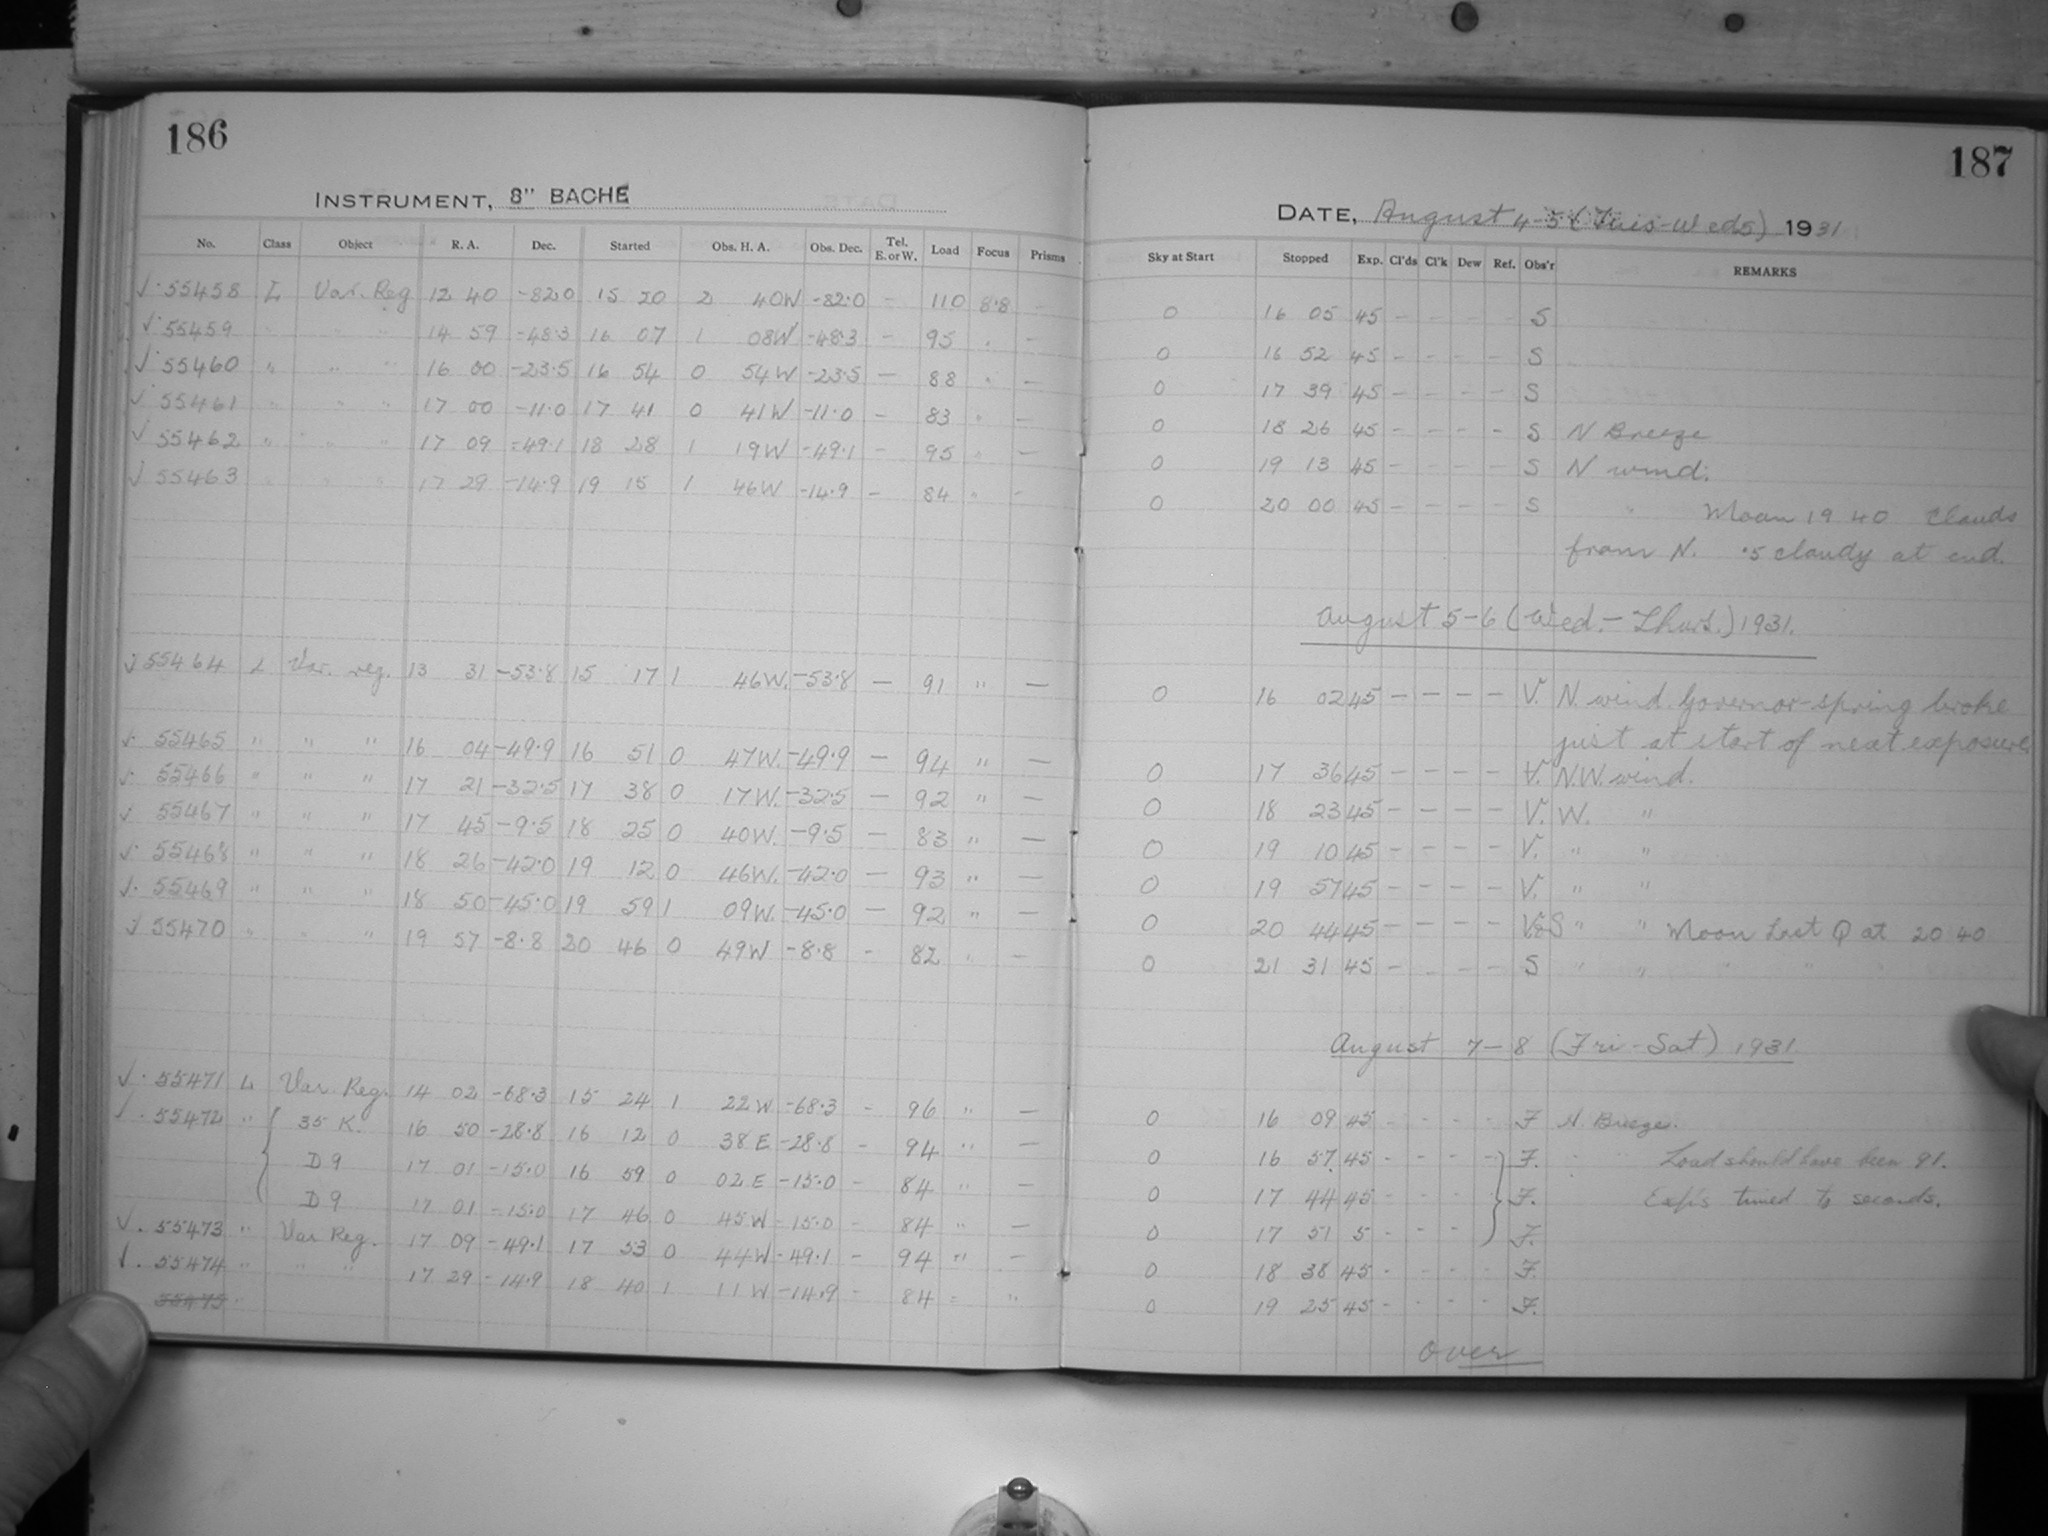 186
INSTRUMENT, 8" BACHE
No. Class Object R. A. Dec. Started Obs. H. A. Obs. Dec. Tel. E. or W. Load Focus Prisms
√· 55458 L Var. Reg 12 40 -82.0 15 20 2 40W -82.0 - 110 8.8 -
√· 55459 " " " 14 59 -48.3 16 07 1 08W -48.3 - 95 " -
√ 55460 " " " 16 00 -23.5 16 54 0 54W -23.5 - 88 " -
√ 55461 " " " 17 00 -11.0 17 41 0 41W -11.0 - 83 " -
√ 55462 " " " 17 09 -49.1 18 28 1 19W -49.1 - 95 " -
√ 55463 " " " 17 29 -14.9 19 15 1 46W -14.9 - 84 " -
√ 55464 L Var. reg. 13 31 -53.8 15 17 1 46W. -53.8 - 91 " -
√· 55465 " " " 16 04 -49.9 16 51 0 47W. -49.9 - 94 " -
√· 55466 " " " 17 21 -32.5 17 38 0 17W. -32.5 - 92 " -
√· 55467 " " " 17 45 -9.5 18 25 0 40W. -9.5 - 83 " -
√· 55468 " " " 18 26 -42.0 19 12 0 46W. -42.0 - 93 " -
√· 55469 " " " 18 50 -45.0 19 59 1 09W. -45.0 - 92 " -
√ 55470 " " " 19 57 -8.8 20 46 0 49W -8.8 - 82 " -
√· 55471 L Var. Reg. 14 02 -68.3 15 24 1 22W -68.3 - 96 " -
√· 55472 " { 35 K. 16 50 -28.8 16 12 0 38E -28.8 - 94 " -
D9 17 01 -15.0 16 59 0 02E -15.0 - 84 " -
D9 17 01 -15.0 17 46 0 45W -15.0 - 84 " -
√. 55473 " Var Reg. 17 09 -49.1 17 53 0 44W -49.1 - 94 " -
√. 55474 " " " 17 29 -14.9 18 40 1 11W -14.9 - 84 = "
55475
187
DATE, August 4-5 (Tues-Weds) 1931
Sky at Start Stopped Exp. Cl'ds Cl'k Dew Ref. Obs'r REMARKS
0 16 05 45 - - - - S
0 16 52 45 - - - - S
0 17 39 45 - - - - S
0 18 26 45 - - - - S N Breeze
0 19 13 45 - - - - S N wind.
0 20 00 45 - - - - S " Moon 19 40 Clouds
from N. .5 cloudy at end.
August 5-6 (Wed.- Thurs.) 1931.
0 16 02 45 - - - - V. N. wind. Governor-spring broke
just at start of next exposure
0 17 36 45 - - - - V. N.W. wind.
0 18 23 45 - - - - V. W. "
0 19 10 45 - - - - V. " "
0 19 57 45 - - - - V. " "
0 20 44 45 - - - - V&S " " Moon Last Q at 20 40
0 21 31 45 - - - - S " " " "
August 7-8 (Fri-Sat) 1931
0 16 09 45 - - - - F N. Breeze.
0 16 57 45 - - - - } F. " " Load should have been 91.
0 17 44 45 - - - F. Exp's timed to seconds.
0 17 51 5 - - - F.
0 18 38 45 - - - - F.
0 19 25 45 - - - - F.
Over